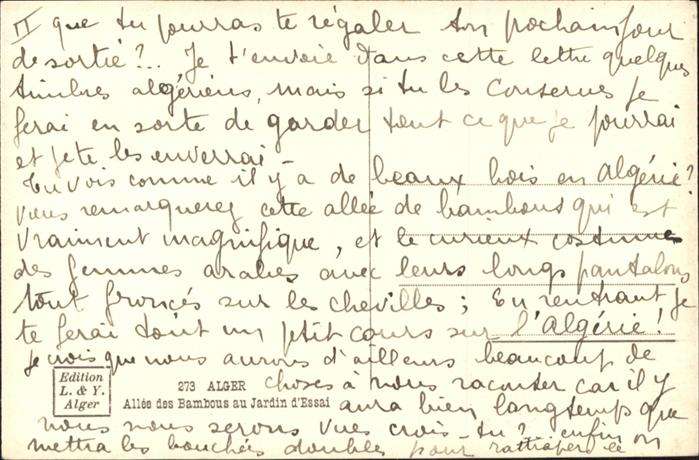 II que tu pourras te régaler ton prochain jour
de sortie ?.. Je t'envoie dans cette lettre quelques
timbres algériens, mais si tu les conserves je
ferai en sorte de garder tout ce que je pourrai
et je te les enverrai –
Tu vois comme il y a de beaux bois en Algérie ?
vous remarquerez cette allée de bambous qui est
vraiment magnifique, et le curieux costume
des femmes arabes avec leurs longs pantalons
tout froncés sur les chevilles ; En rentrant je
te ferai tout un petit cours sur l'Algérie !
Je crois que nous aurons d'ailleurs beaucoup de
choses à nous raconter car il y
aura bien longtemps que
nous nous serons vues crois-tu ? enfin on
mettra les bouchées doubles pour
Edition
L. & Y.
Alger
273 ALGER
Allée des Bambous au Jardin d'Essai